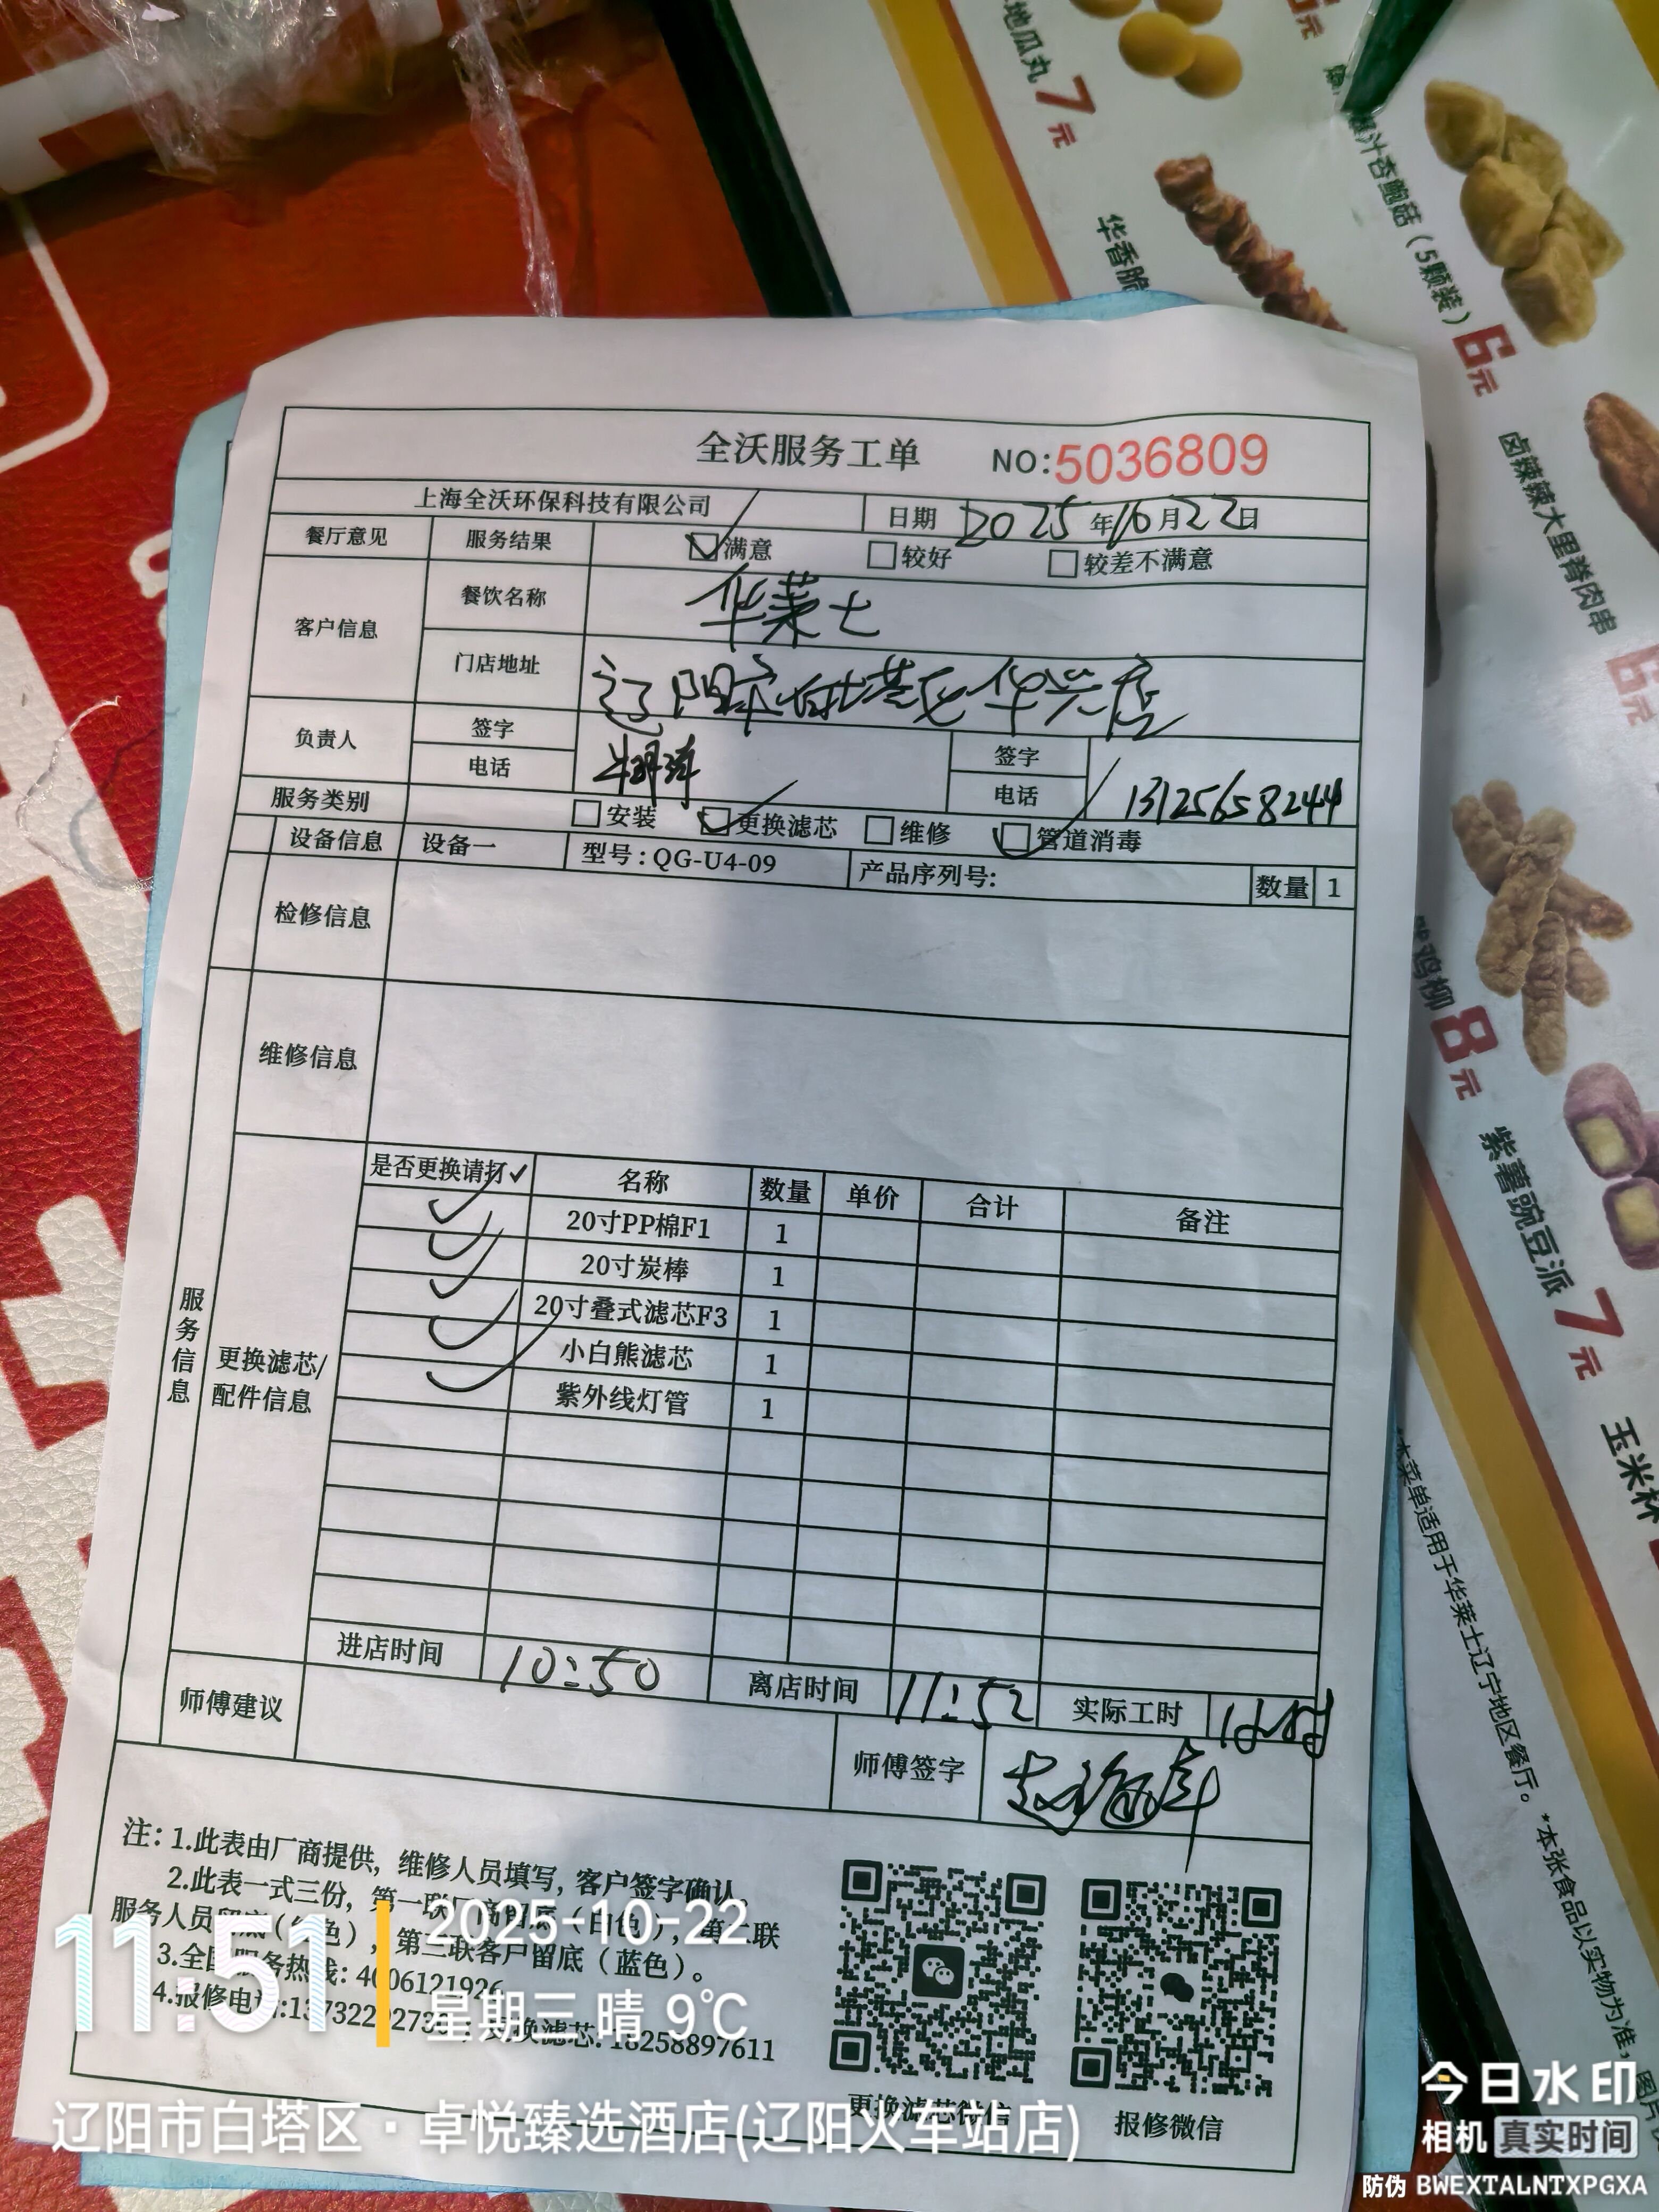 地瓜丸 7元
汁杏鲍菇（5颗装）6元
华香脆
卤辣辣大里脊肉串
6元
鸡柳 8元
紫薯豌豆派 7元
玉米杯
本菜单适用于华莱士辽宁地区餐厅。*本张食品以实物为准，图片
全沃服务工单 NO:5036809
上海全沃环保科技有限公司 日期 2025年10月22日
餐厅意见 服务结果 满意 较好 较差不满意
客户信息 餐饮名称 华莱士
门店地址 辽阳市白塔区华兴店
负责人 签字 签字
电话 电话 13125658244
服务类别 安装 更换滤芯 维修 管道消毒
设备信息 设备一 型号:QG-U4-09 产品序列号: 数量 1
检修信息
维修信息
服务信息
更换滤芯/配件信息
是否更换请打✓ 名称 数量 单价 合计 备注
✓ 20寸PP棉F1 1
✓ 20寸炭棒 1
✓ 20寸叠式滤芯F3 1
✓ 小白熊滤芯 1
✓ 紫外线灯管 1
进店时间 10:50 离店时间 11:52 实际工时 1小时
师傅建议 师傅签字
注: 1.此表由厂商提供, 维修人员填写, 客户签字确认。
2.此表一式三份, 第一联厂商留底（白色）, 第二联
服务人员留底（红色）, 第三联客户留底（蓝色）。
3.全国服务热线: 4006121926
4.报修电话: 更换滤芯: 18258897611
更换滤芯微信 报修微信
11:51 2025-10-22
星期三 晴 9℃
辽阳市白塔区·卓悦臻选酒店(辽阳火车站店)
今日水印
相机 真实时间
防伪 BWEXTALNTXPGXA